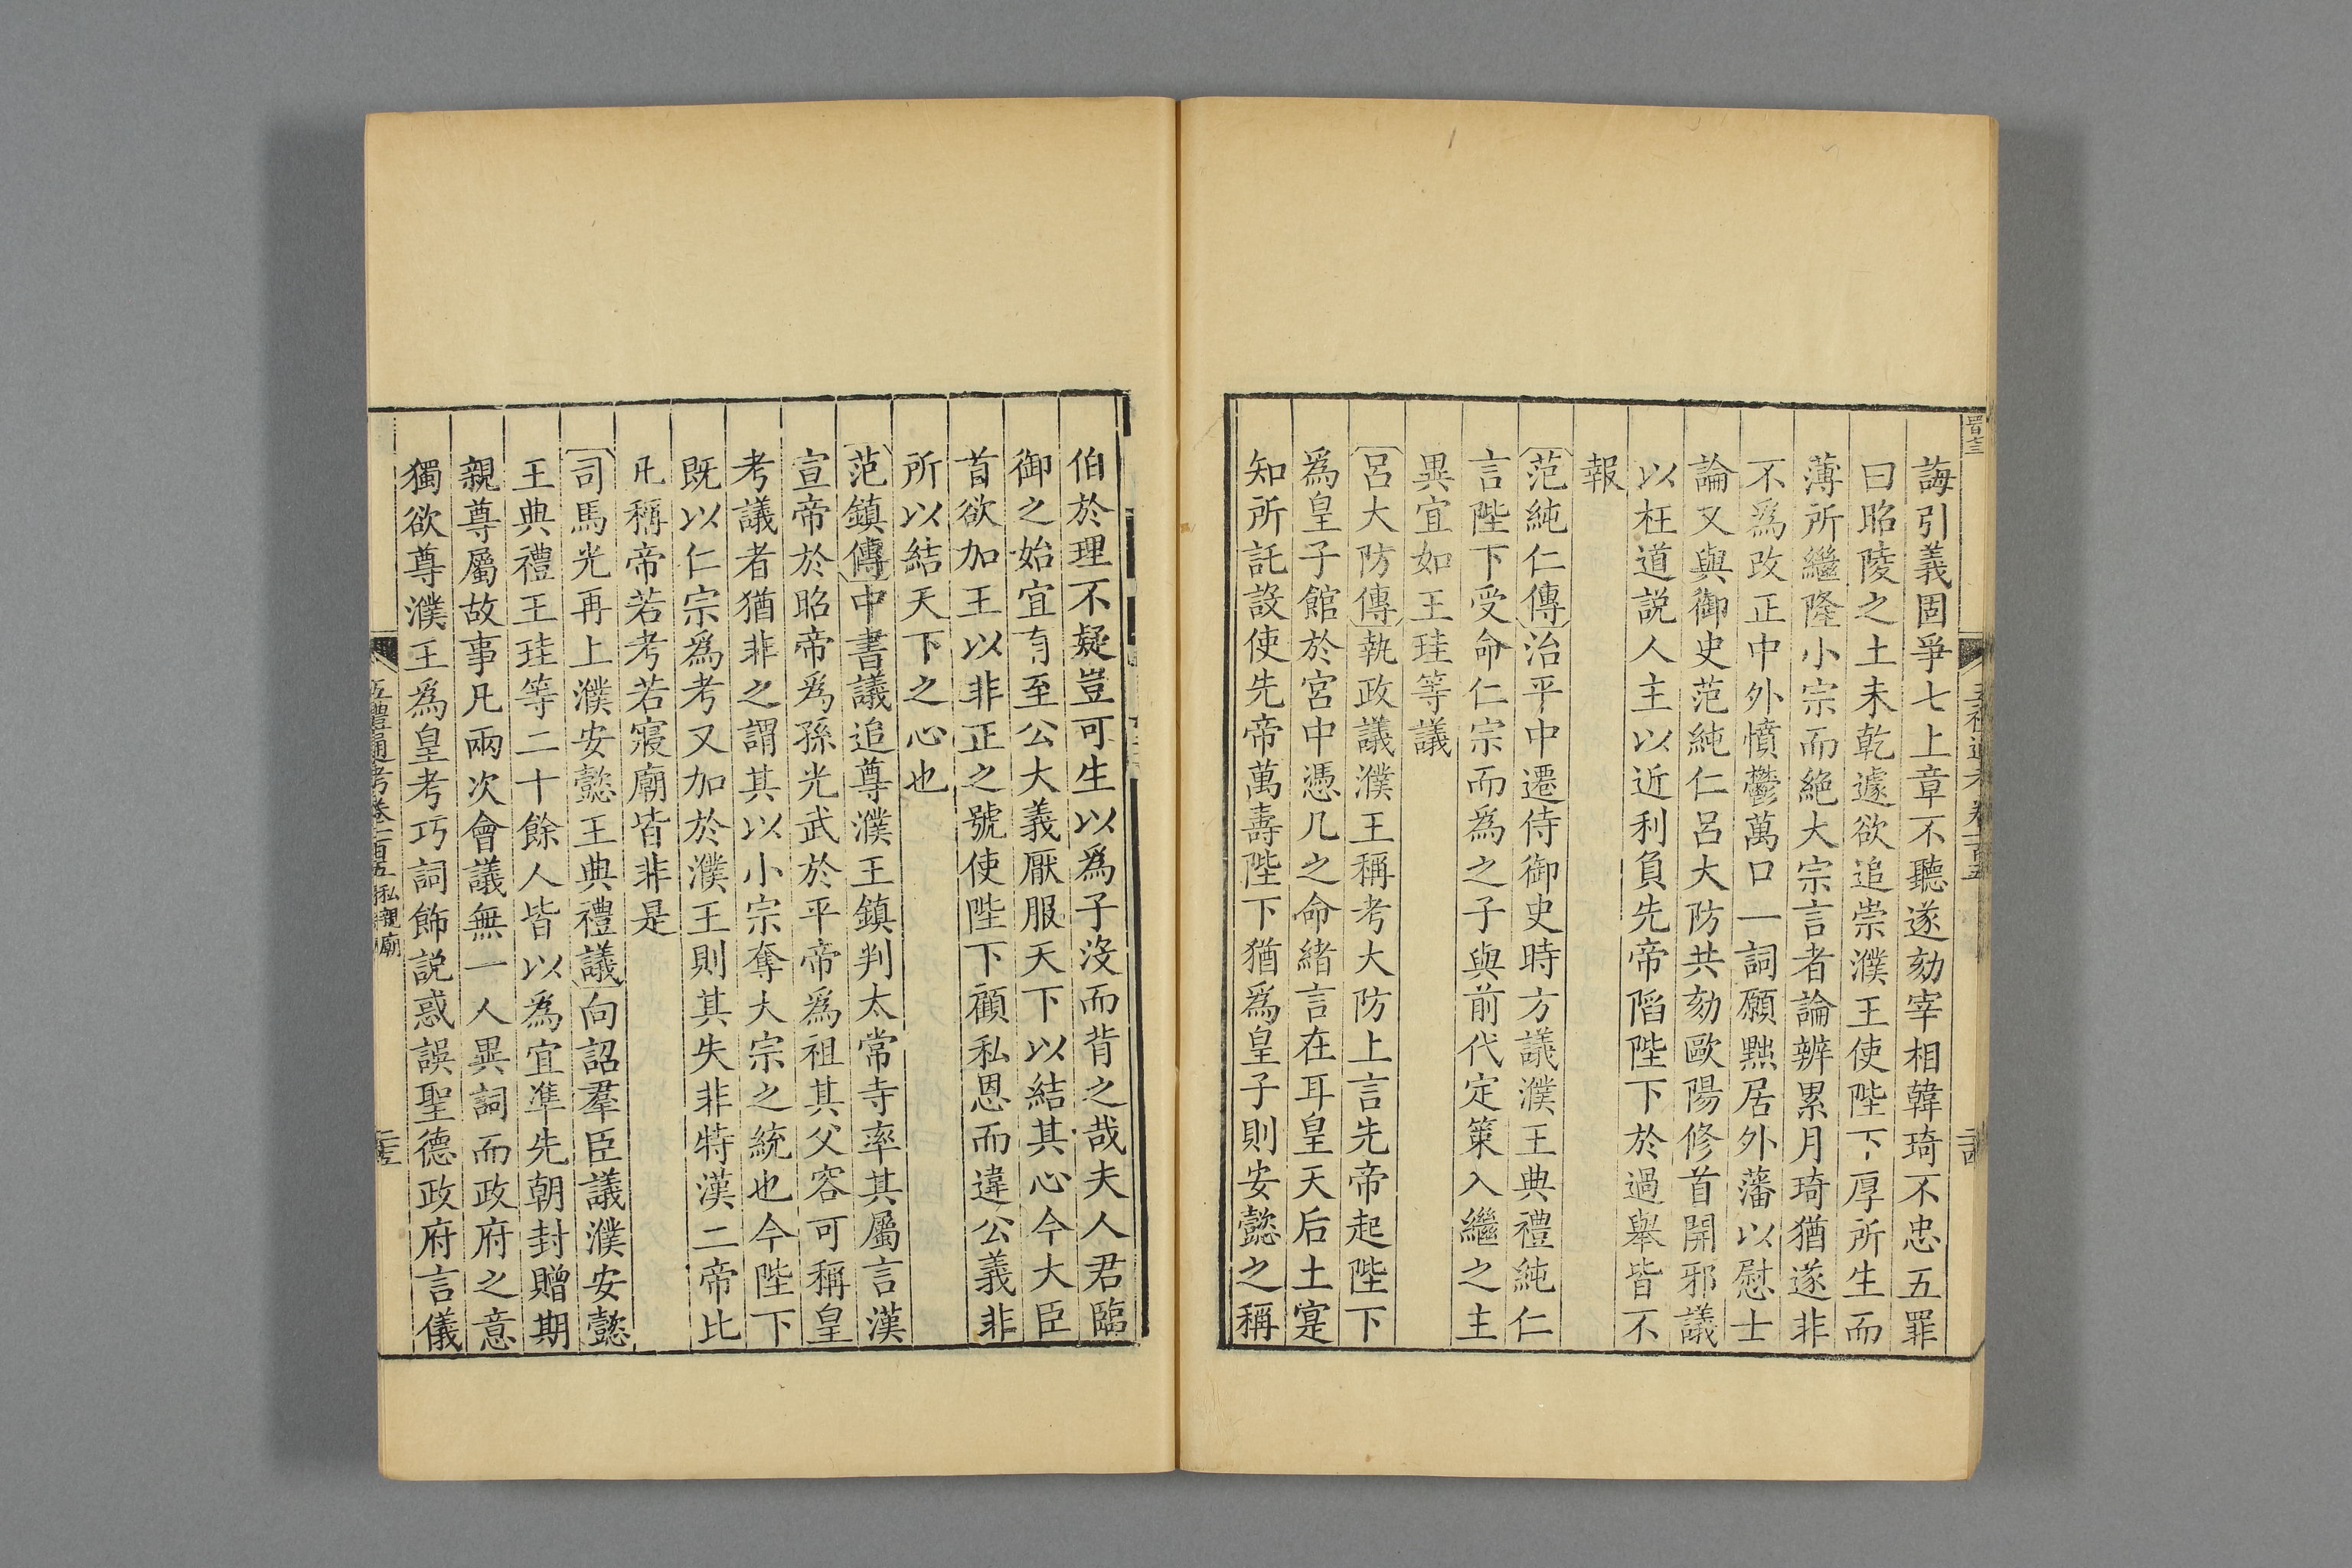 誨引義固爭七上章不聽遂劾宰相韓琦不忠五罪
曰昭陵之土未乾遽欲追崇濮王使陛下厚所生而
薄所繼隆小宗而絶大宗言者論辨累月琦猶遂非
不爲改正中外憤鬱萬口一詞願黜居外藩以慰士
論又與御史范純仁呂大防共劾歐陽修首開邪議
以枉道説人主以近利負先帝陷陛下於過舉皆不
報
范純仁傳治平中遷侍御史時方議濮王典禮純仁
言陛下受命仁宗而為之子與前代定策入繼之主
異宜如王珪等議
呂大防傳執政議濮王稱考大防上言先帝起陛下
爲皇子館於宮中憑几之命緒言在耳皇天后土寔
知所託設使先帝萬壽陛下猶爲皇子則安懿之稱
伯於理不疑豈可生以爲子沒而背之哉夫人君臨
御之始宜有至公大義厭服天下以結其心今大臣
首欲加王以非正之號使陛下顧私恩而違公義非
所以結天下之心也
范鎮傳中書議追尊濮王鎮判太常寺率其屬言漢
宣帝於昭帝爲孫光武於平帝爲祖其父容可稱皇
考議者猶非之謂其以小宗奪大宗之統也今陛下
既以仁宗爲考又加於濮王則其失非特漢二帝比
凡稱帝若考若寢廟皆非是
司馬光再上濮安懿王典禮議向詔羣臣議濮安懿
王典禮王珪等二十餘人皆以為宜準先朝封贈期
親尊屬故事凡兩次會議無一人異詞而政府之意
獨欲尊濮王爲皇考巧詞飾説惑誤聖德政府言儀
五禮通考卷一百五 私親廟